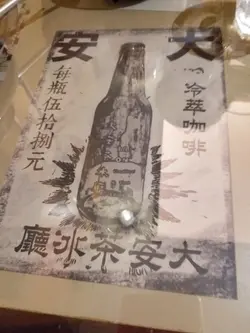 大安
冷萃咖啡
每瓶伍拾捌元
大安茶冰廳